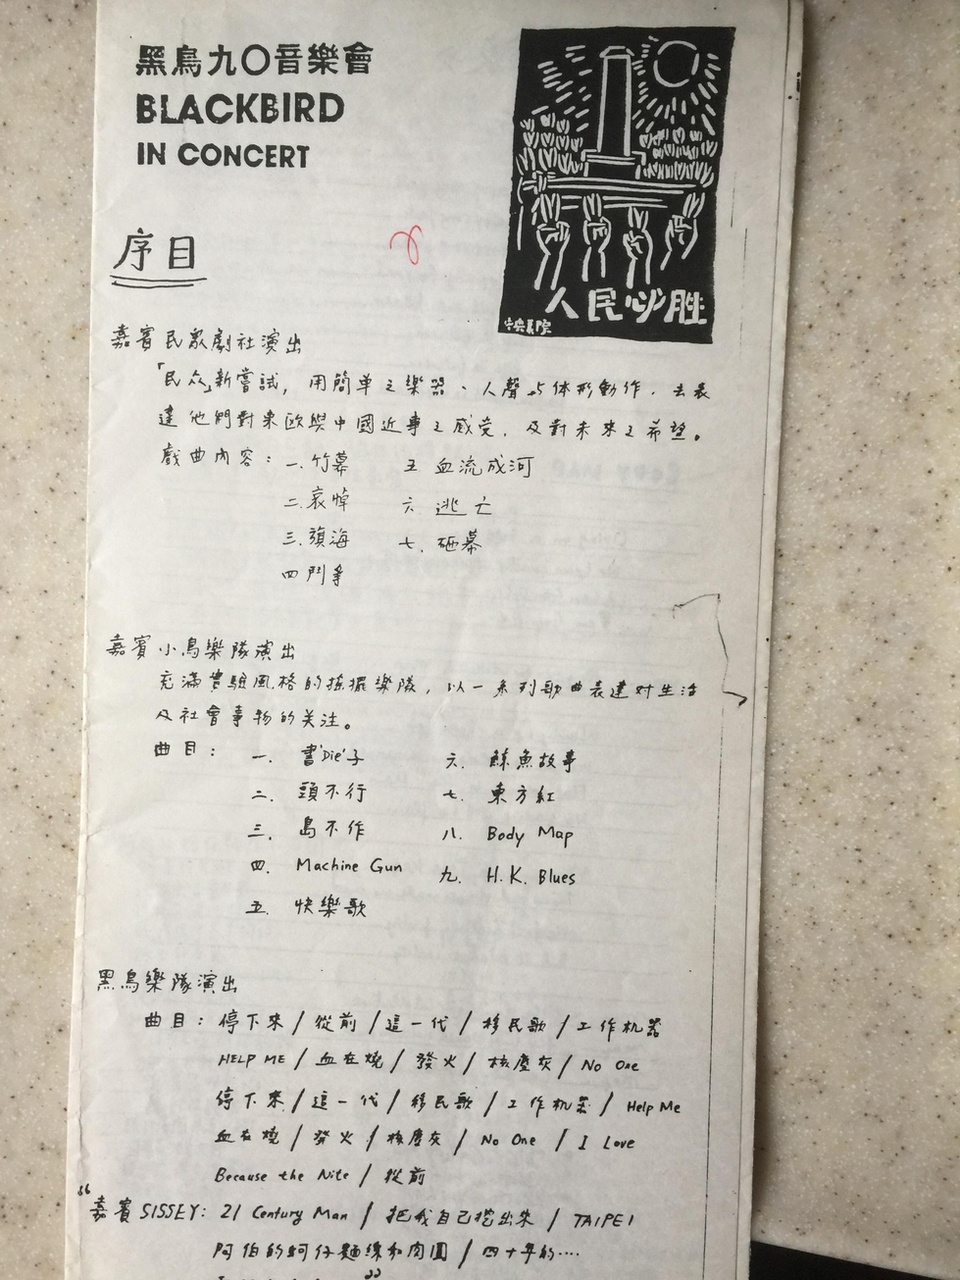 黑鳥九〇音樂會
BLACKBIRD
IN CONCERT
人民必胜
中央美院
序目
嘉賓民眾劇社演出
「民众」新嘗試，用簡单之樂器、人聲与体形動作，去表
達他們對東欧與中國近事之感受，及對未來之希望。
戲曲內容：一.竹幕 五 血流成河
二.哀悼 六 逃亡
三.頭海 七.砸幕
四 鬥爭
嘉賓小鳥樂隊演出
充滿實驗風格的搖擺樂隊，以一系列歌曲表達对生活
及社會事物的关注。
曲目： 一. 書'Die'子 六. 鯨魚故事
二. 頭不行 七. 東方紅
三. 島不作 八. Body Map
四. Machine Gun 九. H.K. Blues
五. 快樂歌
黑鳥樂隊演出
曲目：停下來 / 從前 / 這一代 / 移民歌 / 工作机器
HELP ME / 血在燒 / 發火 / 核塵灰 / No One
停下來 / 這一代 / 移民歌 / 工作机器 / Help Me
血在燒 / 發火 / 核塵灰 / No One / I Love
Because the Nite / 從前
"嘉賓SISSEY: 21 Century Man / 把我自己挖出來 / TAIPEI
阿伯的蚵仔麵線和肉圓 / 四十年的....